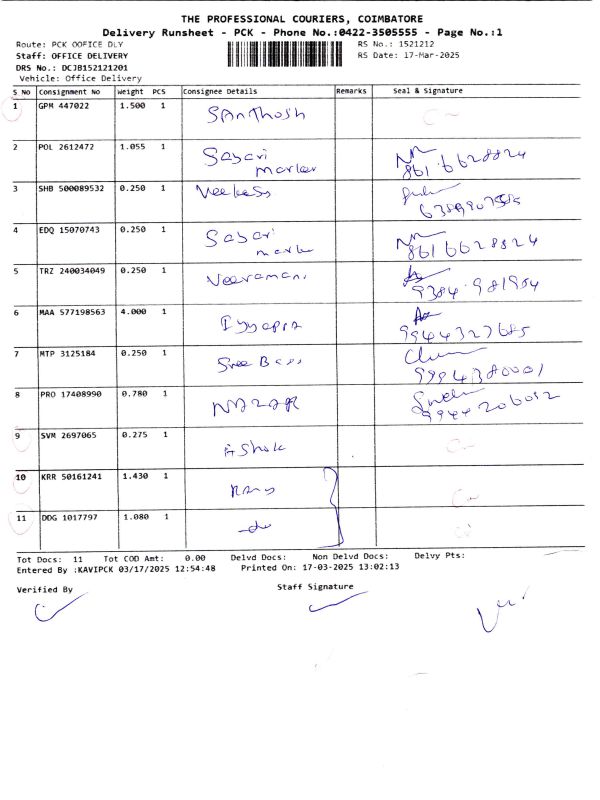 THE PROFESSIONAL COURIERS, COIMBATORE
Delivery Runsheet - PCK - Phone No.:0422-3505555 - Page No.:1
Route: PCK OOFICE DLY RS No.: 1521212
Staff: OFFICE DELIVERY RS Date: 17-Mar-2025
DRS No.: DCJB152121201
Vehicle: Office Delivery
S No Consignment No Weight PCS Consignee Details Remarks Seal & Signature
1 GPM 447022 1.500 1 Santhosh
2 POL 2612472 1.055 1 Sabari
861 6628824
3 SHB 500089532 0.250 1
4 EDQ 15070743 0.250 1 Sabari
861 6628824
5 TRZ 240034049 0.250 1 Veeramani
9384 981954
6 MAA 577198563 4.000 1
9944327685
7 MTP 3125184 0.250 1 Sree
9994380001
8 PRO 17408990 0.780 1
9944206012
9 SVM 2697065 0.275 1 Ashok
10 KRR 50161241 1.430 1
11 DDG 1017797 1.080 1 -do
Tot Docs: 11 Tot COD Amt: 0.00 Delvd Docs: Non Delvd Docs: Delvy Pts:
Entered By :KAVIPCK 03/17/2025 12:54:48 Printed On: 17-03-2025 13:02:13
Verified By Staff Signature